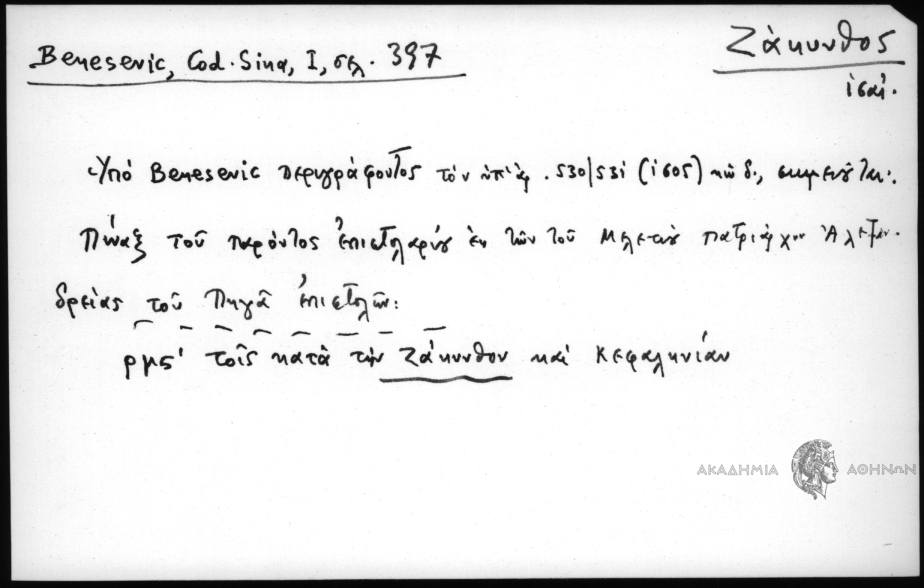 Benesenic, Cod. Sina, I, σελ. 397
Ζάκυνθος
Ὑπό Benesenic περιγράφοντος τόν ὑπ' ἀρ. 530/531 (1605) κώδ., σημειοῦται:
Πίναξ τοῦ παρόντος ἐπιστολαρίου ἐκ τῶν τοῦ Μελετίου πατριάρχου Ἀλεξαν-
δρείας τοῦ Πηγᾶ ἐπιστολῶν:
ρμς' τοῖς κατὰ τὴν Ζάκυνθον καὶ Κεφαληνίαν
ΑΚΑΔΗΜΙΑ ΑΘΗΝΩΝ